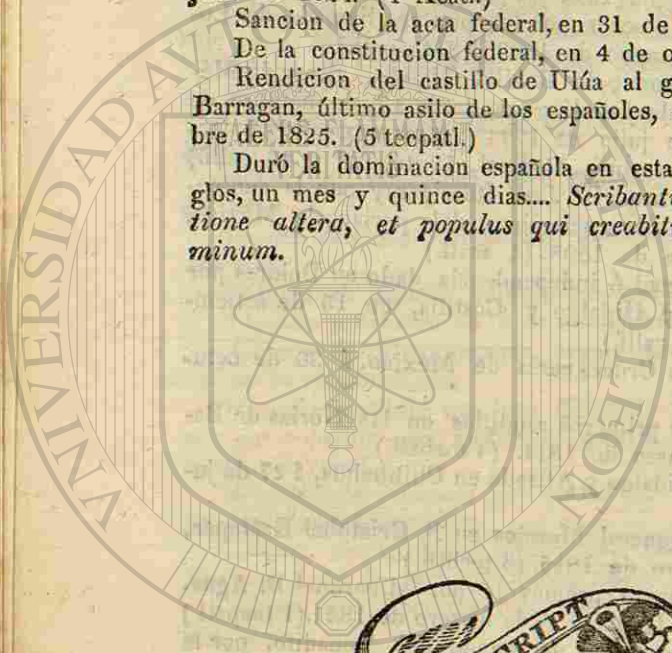 Sancion de la acta federal, en 31 de
De la constitucion federal, en 4 de o
Rendicion del castillo de Ulúa al g
Barragan, último asilo de los españoles,
bre de 1825. (5 tecpatl.)
Duró la dominacion española en esta
glos, un mes y quince dias.... Scribant
tione altera, et populus qui creabit
minum.
UNIVERSIDAD AUTON
SCRIPT